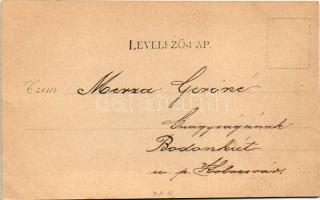 LEVELEZŐ-LAP.
Czím Merza Gerőné
Nagyságának
Bodonkút
u. p. Kolozsvár